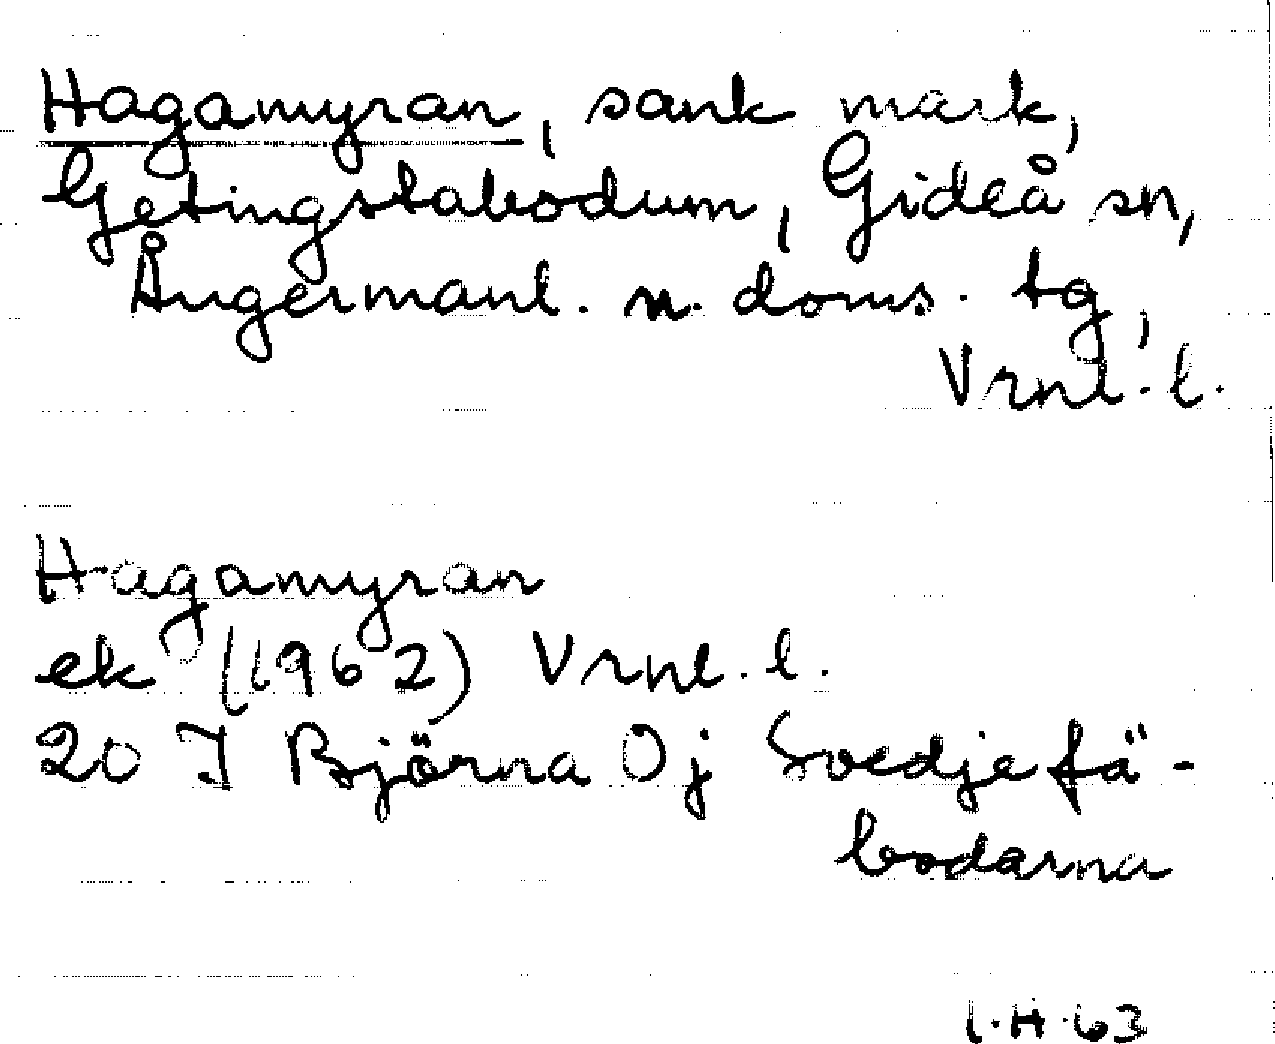 Hagamyran, sank mark,
Getingstabodum, Gideå sn,
Ångermanl. n. doms. tg,
Vrnl. l.
Hagamyran
ek (1962) Vrnl. l.
20 I Björna 0j Svedjefä-
bodarna
I.H.63